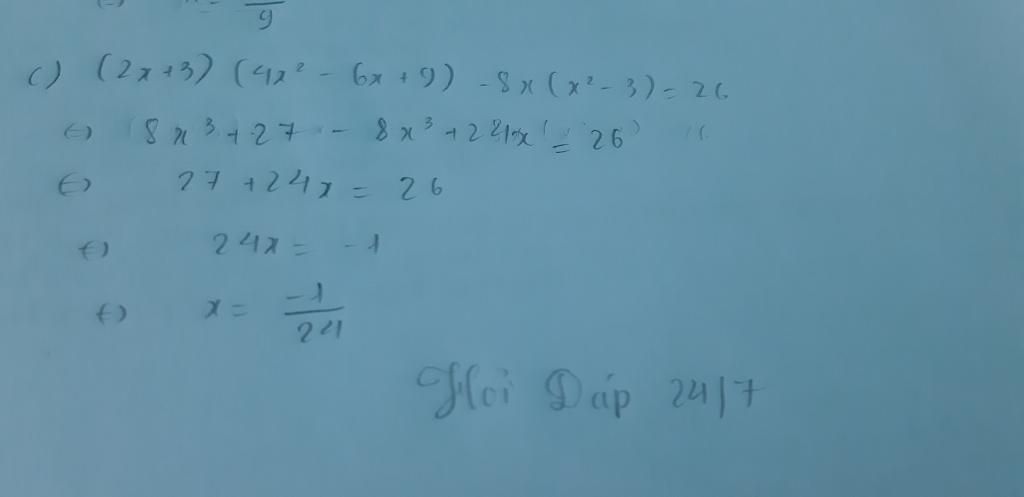 9
c) (2x+3) (4x² - 6x + 9) - 8x (x² - 3) = 26
⇔ 8x³ + 27 - 8x³ + 24x = 26
⇔ 27 + 24x = 26
⇔ 24x = -1
⇔ x = -1/24
Hỏi Đáp 24/7